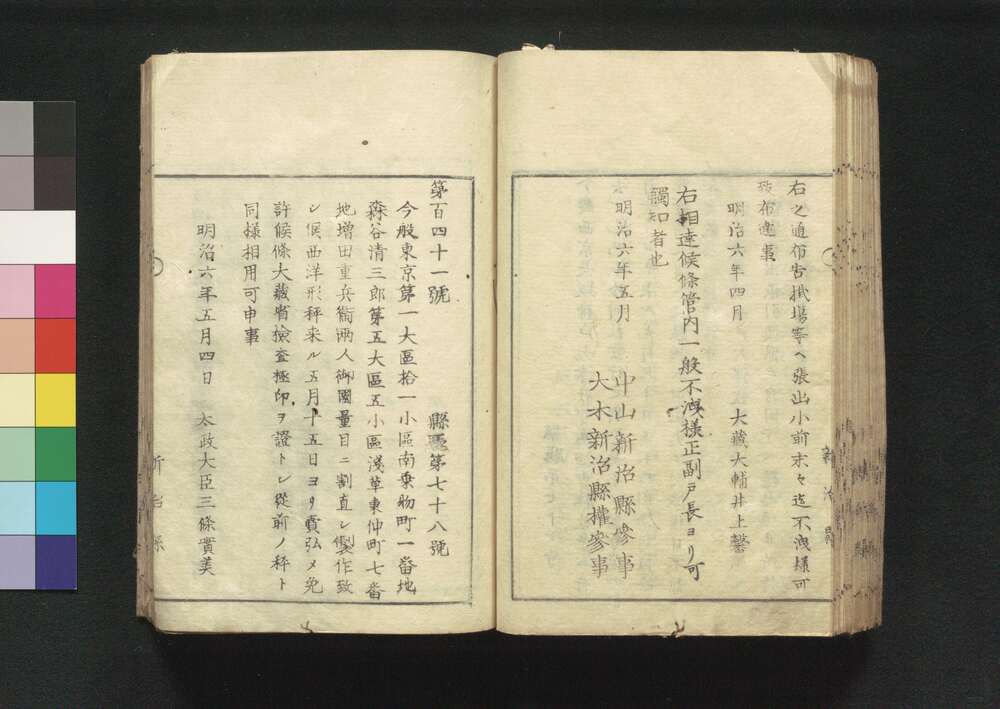 右之通布告掲場等ヘ張出小前末々迄不洩様可
致布達事
明治六年四月　大藏大輔井上馨
右相達候條管内一般不洩様正副戸長ヨリ可
觸知者也
明治六年五月　中山新治縣參事
大木新治縣權參事
第百四十一號　縣第七十八號
今般東京第一大區拾一小區南乗物町一番地
森谷清三郎第五大區五小區淺草東仲町七番
地増田重兵衞兩人御國量目ニ割直シ製作致
シ候西洋形秤来ル五月十五日ヨリ賣弘メ免
許候條大藏省檢査極印ヲ證トシ從前ノ秤ト
同様相用可申事
明治六年五月四日　太政大臣三條實美
新治縣